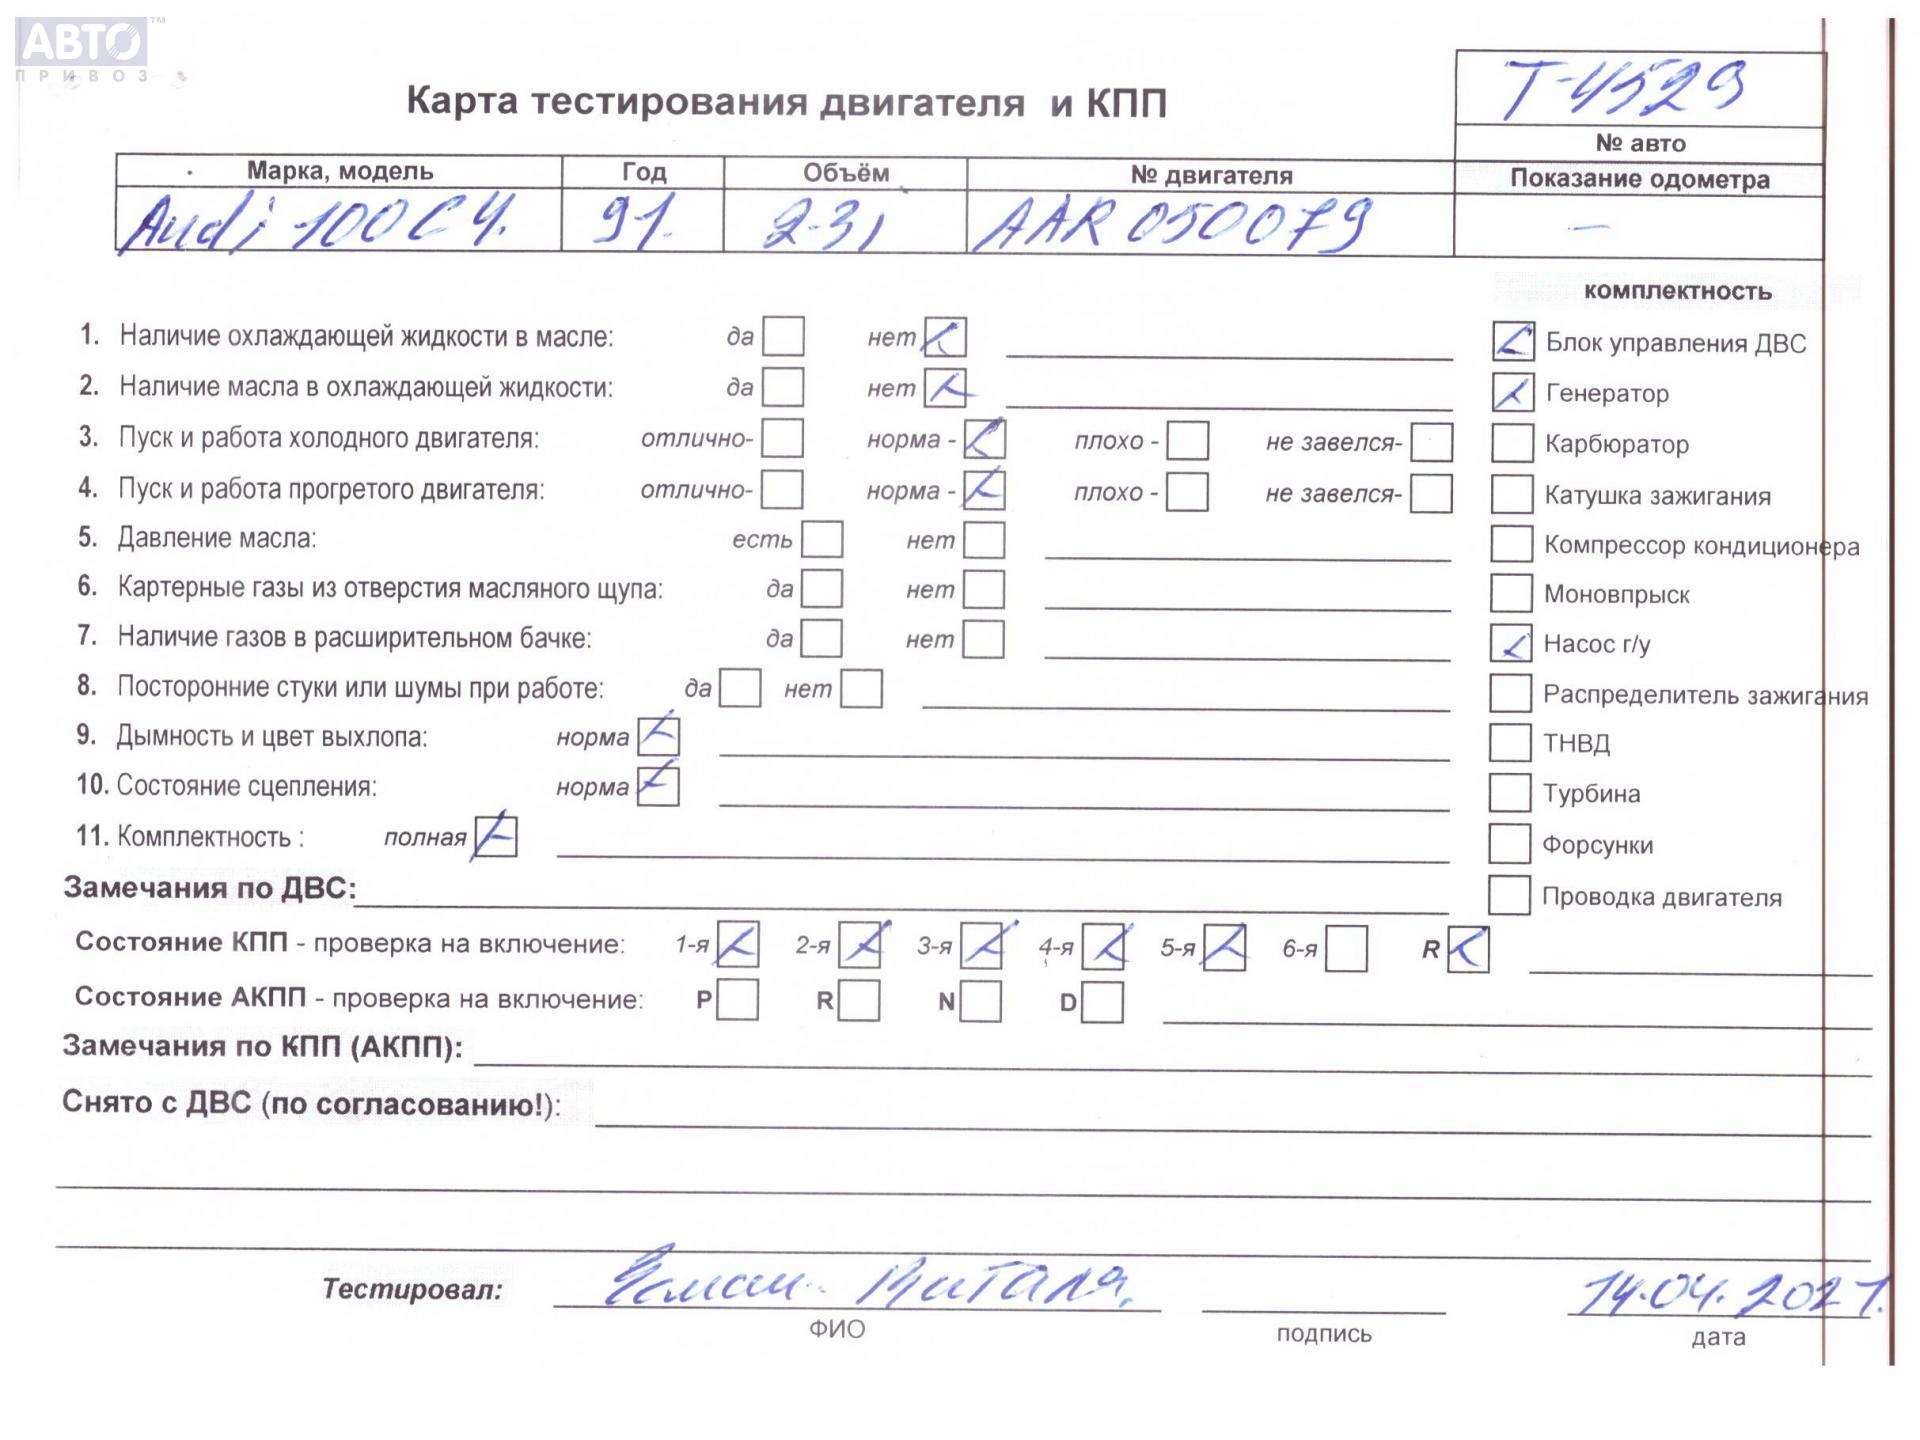 АВТО™
ПРИВОЗ
Карта тестирования двигателя и КПП
Т-4529
№ авто
Марка, модель Год Объём № двигателя Показание одометра
Audi 100 C4. 91. 2-3i AAR 050079 —
комплектность
1. Наличие охлаждающей жидкости в масле: да нет Блок управления ДВС
2. Наличие масла в охлаждающей жидкости: да нет Генератор
3. Пуск и работа холодного двигателя: отлично- норма - плохо - не завелся- Карбюратор
4. Пуск и работа прогретого двигателя: отлично- норма - плохо - не завелся- Катушка зажигания
5. Давление масла: есть нет Компрессор кондиционера
6. Картерные газы из отверстия масляного щупа: да нет Моновпрыск
7. Наличие газов в расширительном бачке: да нет Насос г/у
8. Посторонние стуки или шумы при работе: да нет Распределитель зажигания
9. Дымность и цвет выхлопа: норма ТНВД
10. Состояние сцепления: норма Турбина
11. Комплектность : полная Форсунки
Замечания по ДВС: Проводка двигателя
Состояние КПП - проверка на включение: 1-я 2-я 3-я 4-я 5-я 6-я R
Состояние АКПП - проверка на включение: P R N D
Замечания по КПП (АКПП):
Снято с ДВС (по согласованию!):
Тестировал: 14.04.2021.
ФИО подпись дата